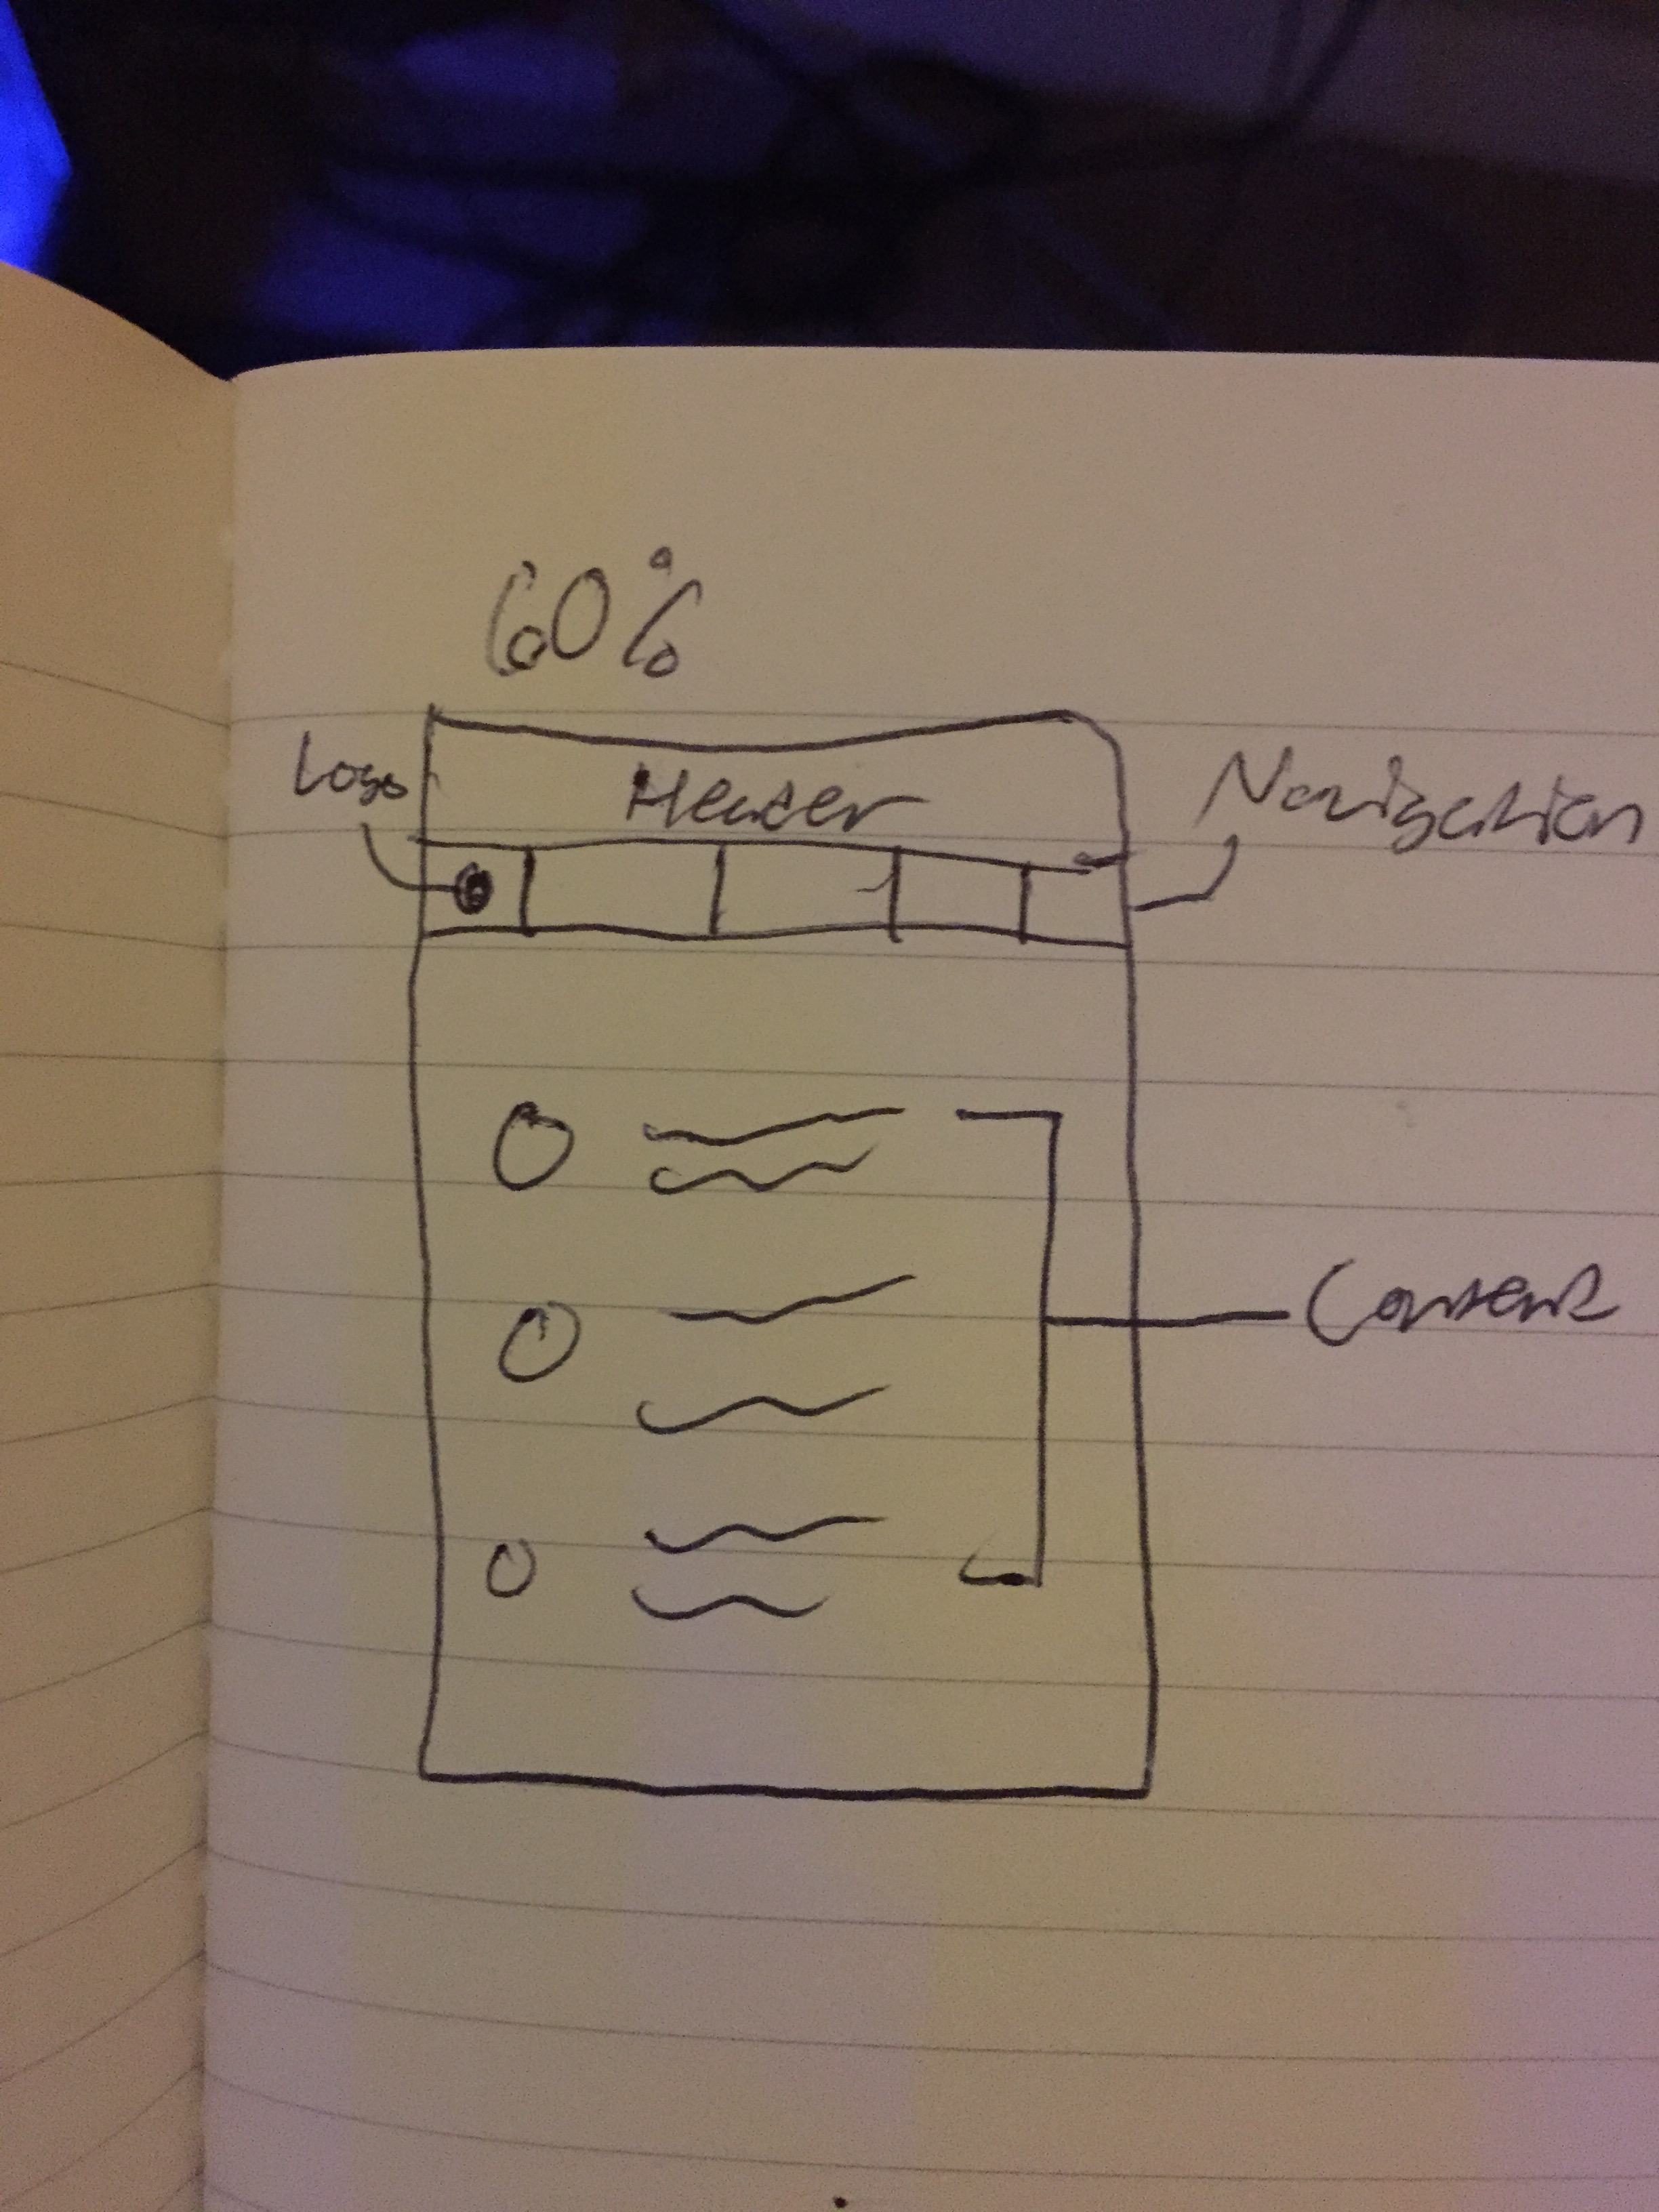 60%
Logo
Header
Navigation
Content